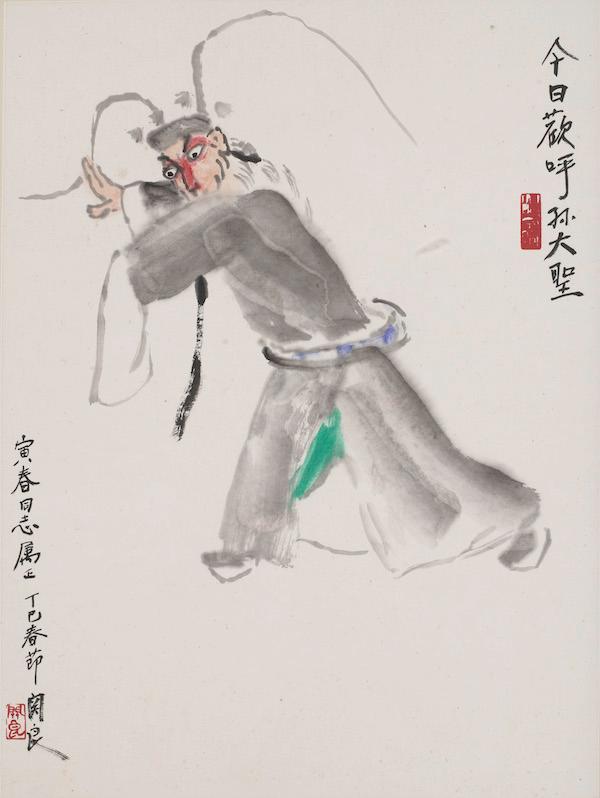 今日歡呼孫大聖
寅春同志属正 丁巳春節 関良
關良